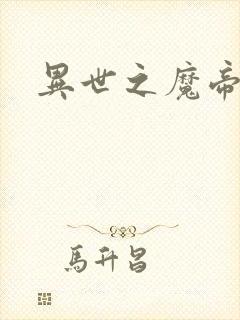 異世之魔帝
馬升昌